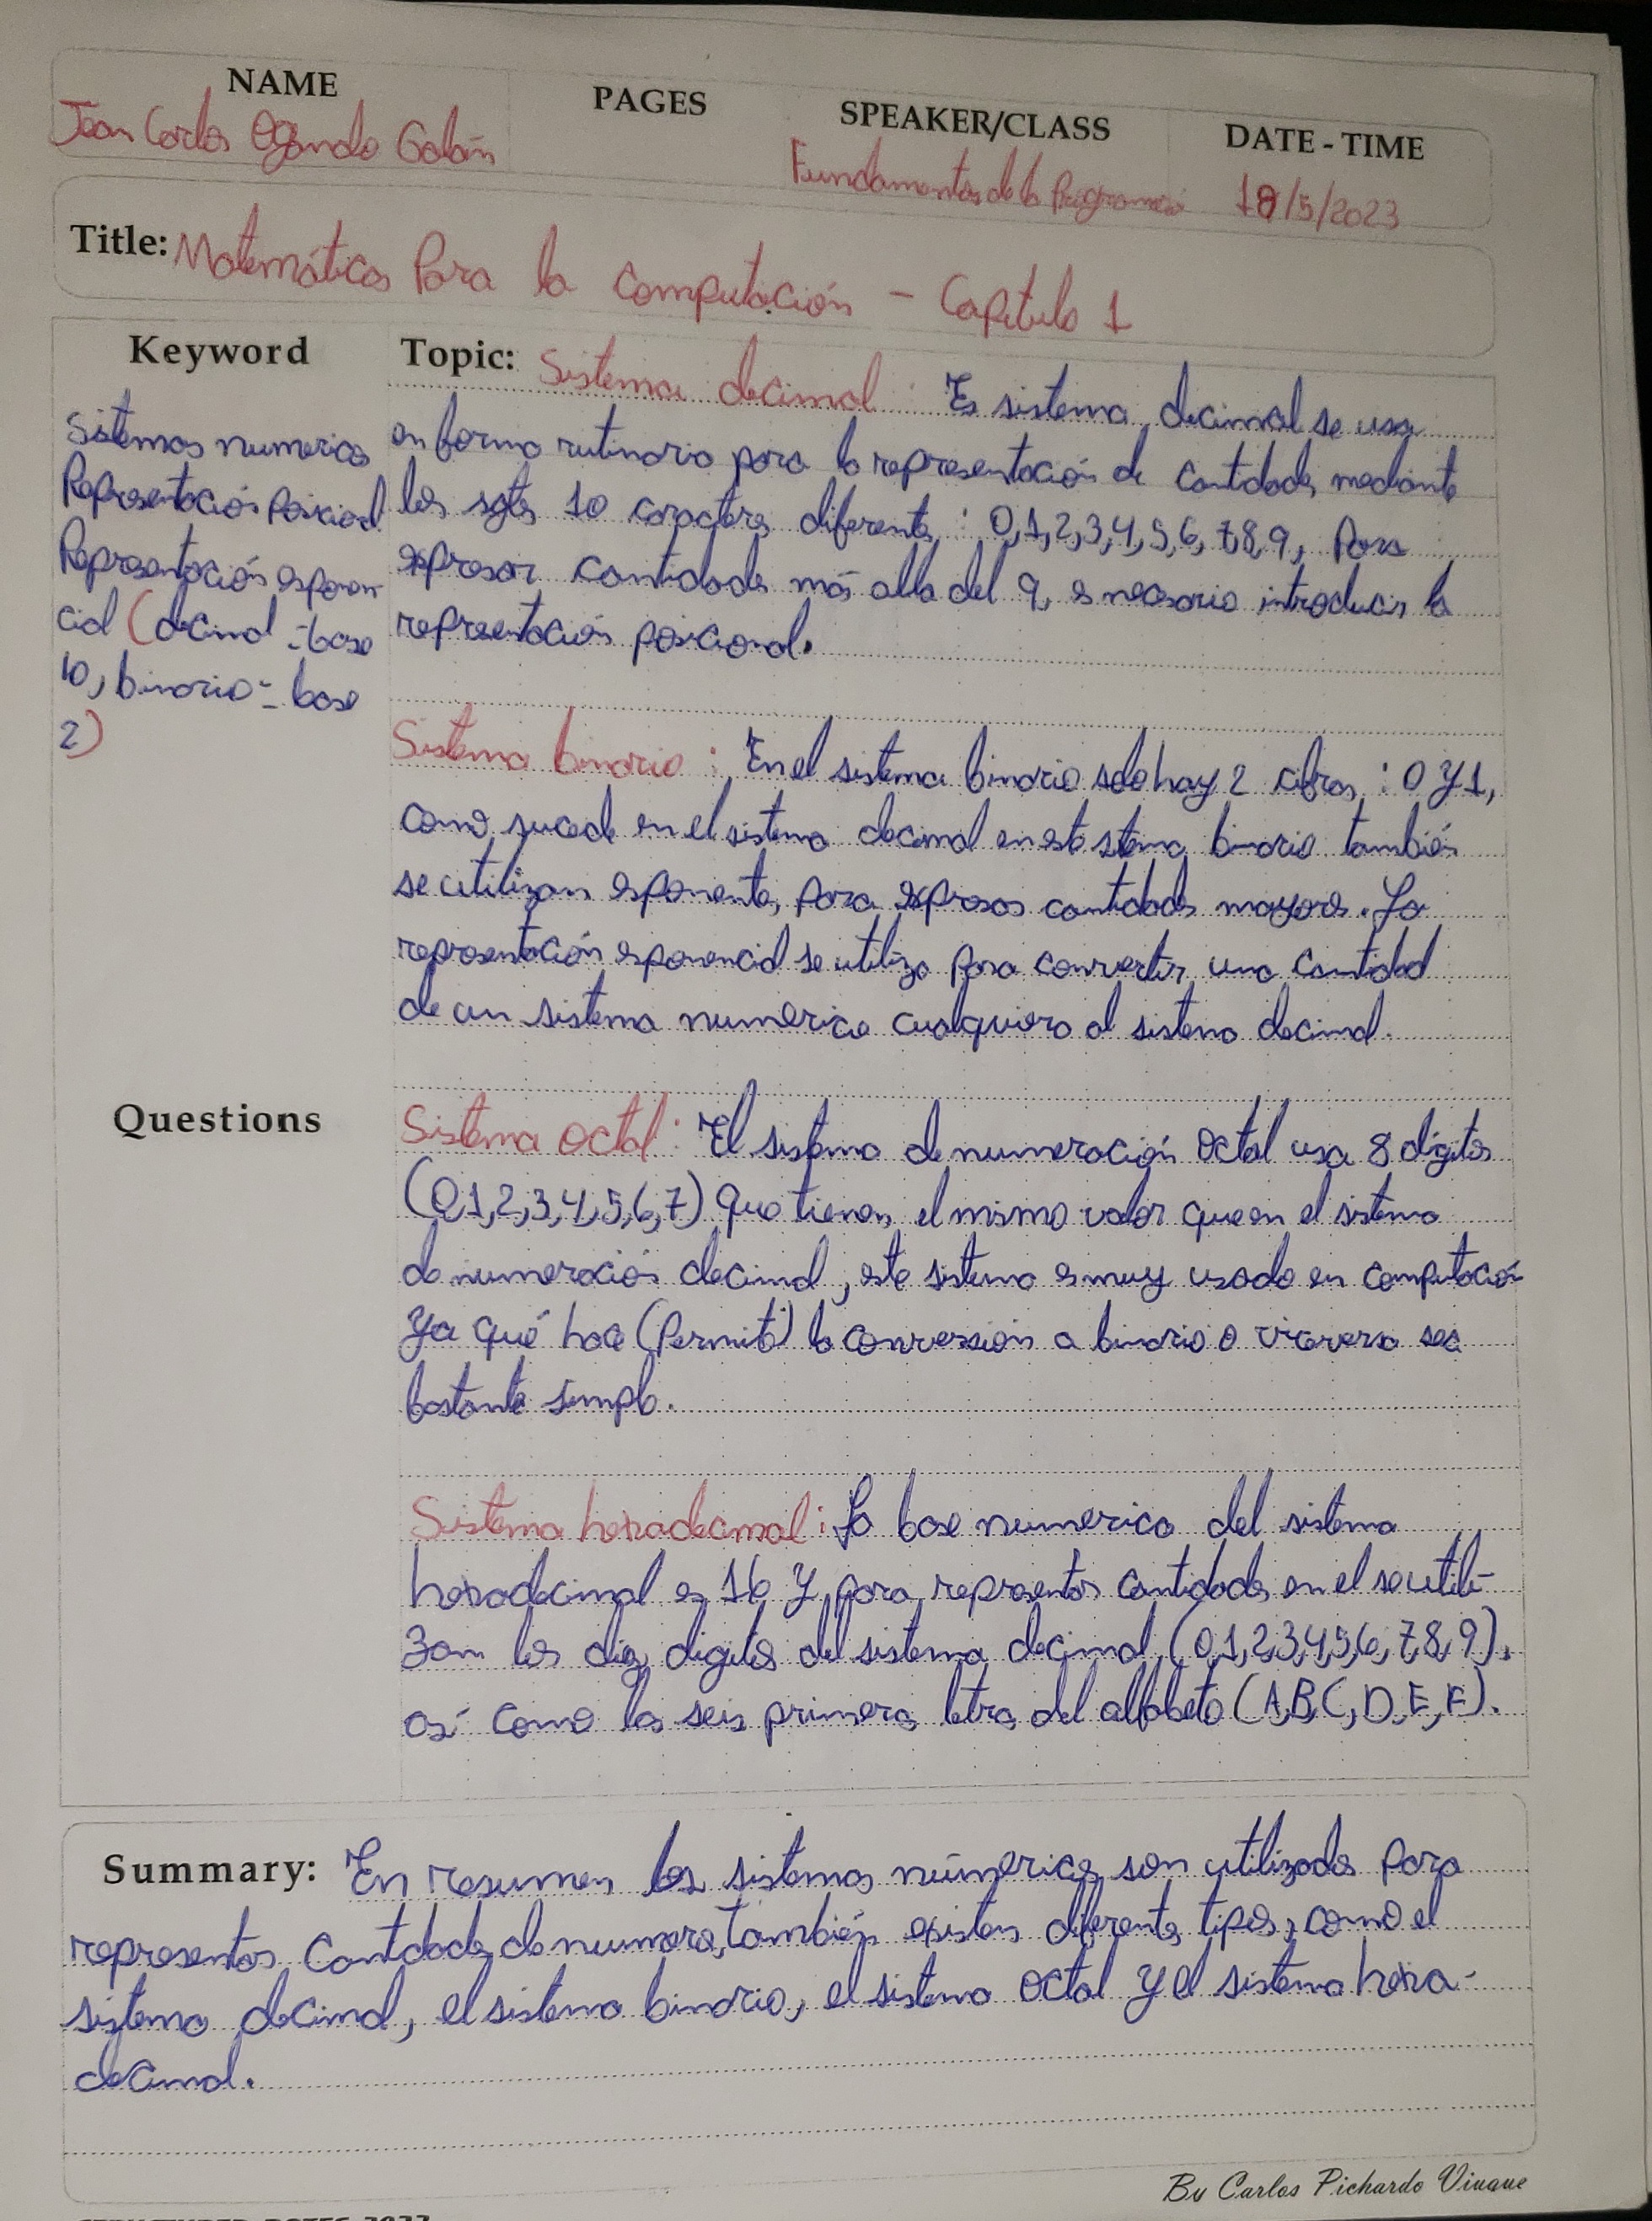 NAME PAGES SPEAKER/CLASS DATE - TIME
Jean Carlos Ogando Galán Fundamentos de la Programació 18/5/2023
Title: Matemáticas Para la computación - Capitulo 1
Keyword
Sistemas numericos
Representación posicional
Representación exponen
cial (decimal = base
10, binario = base
2)
Topic: Sistema decimal: Es sistema decimal se usa
en forma rutinaria para la representación de cantidades mediante
los sgtes 10 caracteres diferentes: 0,1,2,3,4,5,6,7,8,9, Para
expresar cantidades más alla del 9, es necesario introducir la
representación posicional.
Sistema binario: En el sistema binario solo hay 2 cifras: 0 y 1,
como sucede en el sistema decimal en este stema binario también
se utilizan exponentes para expresar cantidades mayores. La
representación exponencial se utiliza para convertir una cantidad
de un sistema numerico cualquiera al sistema decimal.
Questions
Sistema octal: El sistema de numeración octal usa 8 digitos
(0,1,2,3,4,5,6,7) Que tienen el mismo valor que en el sistema
de numeración decimal, este sistema es muy usado en computación
Ya qué hace (Permite) la conversión a binario o viceversa sea
bastante simple.
Sistema hexadecimal: La base numerica del sistema
hexadecimal es 16 y para representar cantidades en el se utili-
zan los diez digitos del sistema decimal (0,1,2,3,4,5,6,7,8,9).
así como las seis primeras letras del alfabeto (A,B,C,D,E,F).
Summary: En resumen los sistemas númericos son utilizados para
representar cantidades de numeros, también existen diferentes tipos, como el
sistema decimal, el sistema binario, el sistema octal y el sistema hexa-
decimal.
By Carlos Pichardo Viuque